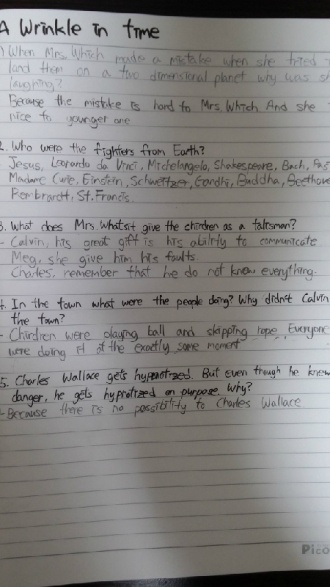 A Wrinkle in time
When Mrs. Which made a mistake when she tried
land them on a two dimensional planet why was s
laughing?
Because the mistake is hard to Mrs. Which. And she
nice to younger one
Who were the fighters from Earth?
Jesus, Leonardo da Vinci, Michelangelo, Shakespeare, Bach,
Madame Curie, Einstein, Schweitzer, Gandhi, Buddha, Beethove
Renbrardt, St. Francis
3. What does Mrs. Whatsit give the children as a talisman?
- Calvin, his great gift is his ability to communicate
Meg, she give him his faults.
Charles, remember that he do not know everything.
4. In the town what were the people doing? Why didn't Calvin
the town?
- Children were playing ball and skipping rope, Everyone
were doing it at the exactly same moment
5. Charles Wallace gets hypnotized. But even though he knew
danger, he gets hypnotized on purpose. Why?
- Because there is no possibility to Charles Wallace.
Pico